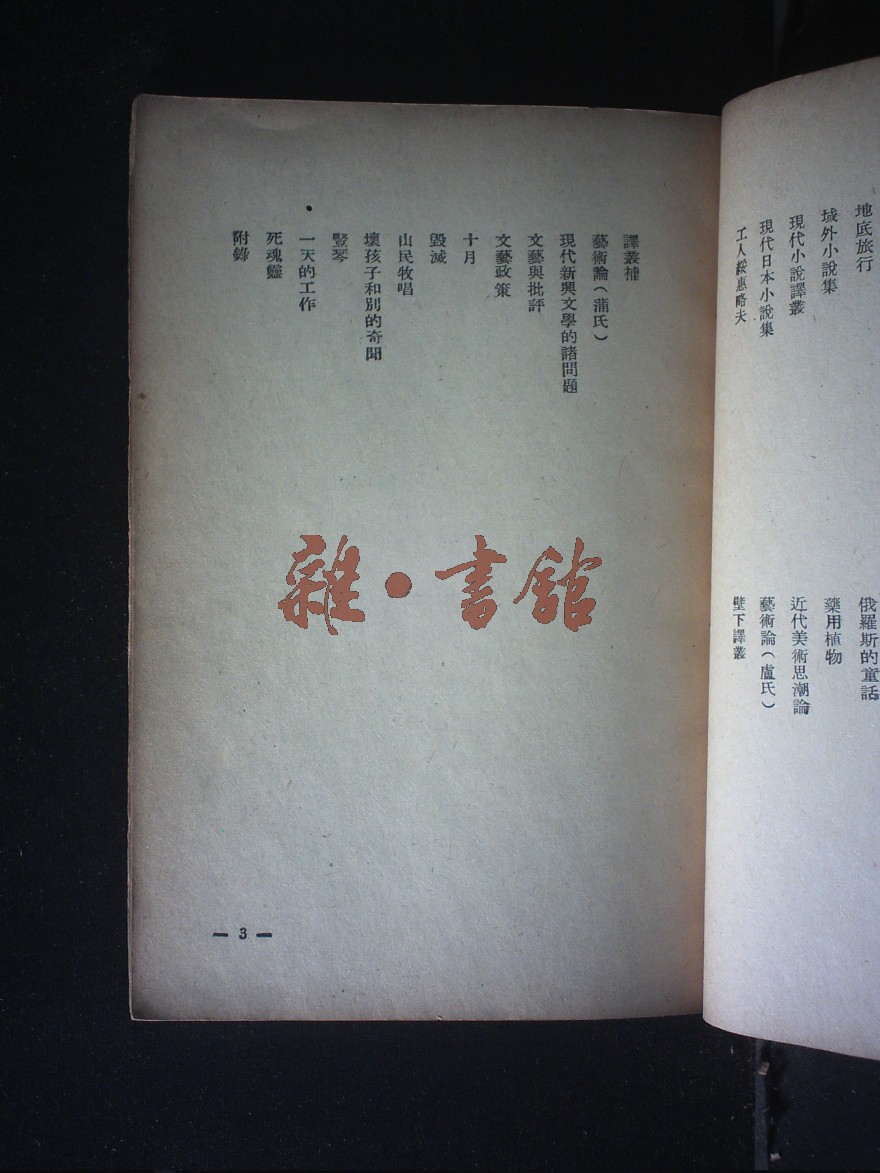 地底旅行
域外小說集
現代小說譯叢
現代日本小說集
工人綏惠略夫
俄羅斯的童話
藥用植物
近代美術思潮論
藝術論(盧氏)
壁下譯叢
譯叢補
藝術論(蒲氏)
現代新興文學的諸問題
文藝與批評
文藝政策
十月
毀滅
山民牧唱
壞孩子和別的奇聞
豎琴
一天的工作
死魂靈
附錄
雜·書館
— 3 —